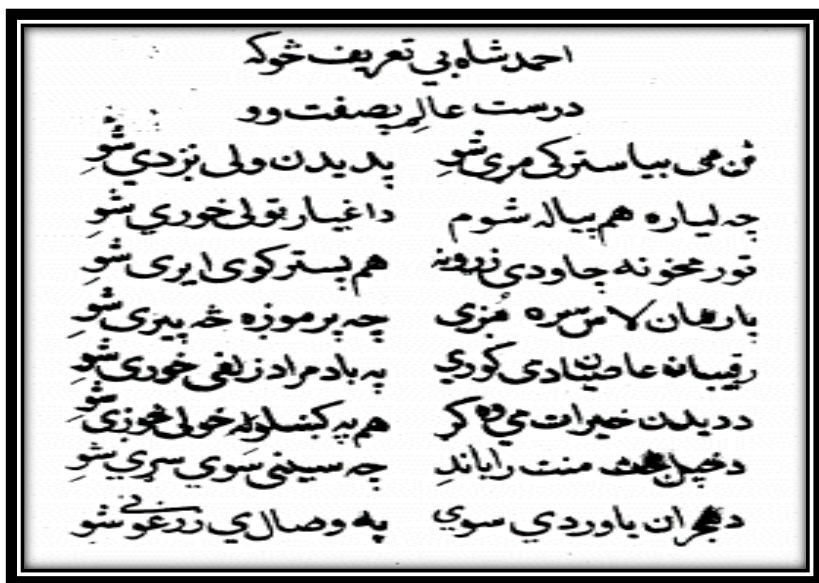 احمد شاه يي تعريف څوکه
درست عالم پصفت وو
نن مي بيا سترکی مړی شو پديدن ولی نزدي شو
چه لياره هم پياله شوم د اغيار ټولی خوري شو
تور مخونه چاودی زړونه هم پستر کوی ايری شو
يار همان لاس سره مُزی چه پر موزه څه پيزی شو
رقيبان عاصيان دی ګوري په باد مراد زلفی خوری شو
د ديدن خيرات می وکړ هم په کښلو خولی شو
د خپل بخت منت راباند چه سينی سوي سړي شو
د هجران ياوردي سوي په وصال ي زرغونی شو